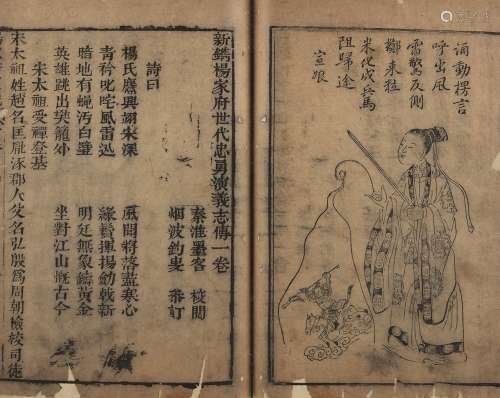 涌動楞言
呼出風
雷驚反側
擲來猛
米化成兵馬
阻歸途
宣娘
新鐫楊家府世代忠勇演義志傳一卷
秦淮墨客 校閱
烟波釣叟 參訂
詩曰
楊氏應興翊宋深 風開將落 寒心
青矜叱咤風雷迅 綠鬢揮揚劍戟新
暗地有蝿污白璧 明廷無象鑄黃金
英雄跳出樊籠外 坐對江山慨古今
宋太祖受禪登基
宋太祖姓趙名匡胤涿郡人父名弘殷為周朝檢校司徒